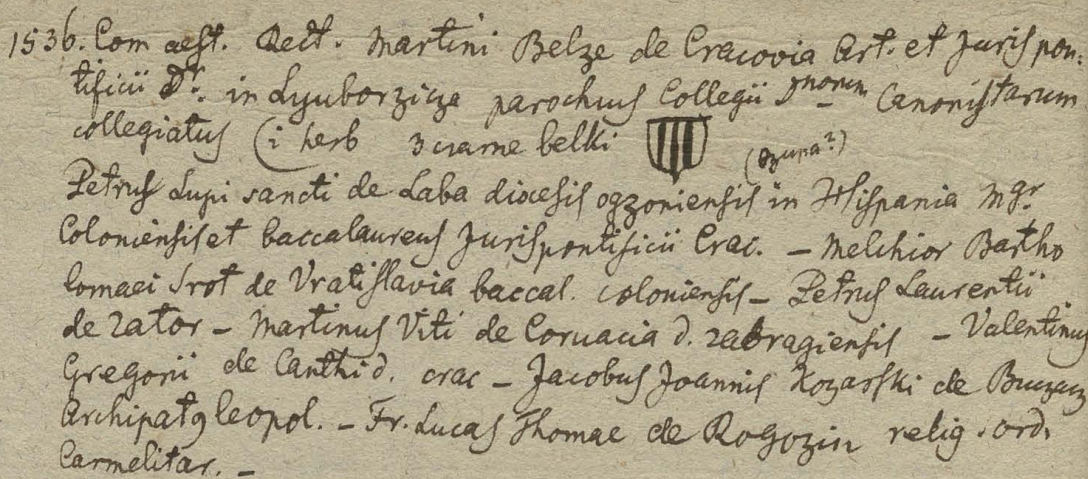 1536. Com aest. Rect. Martini Belze de Cracovia Art. et Juris pon:
tificii Dr. in Lyuborzicze parochus Collegii Jnorum Canonistarum
collegiatus (i herb 3 czarne belki
(Ozuna?)
Petrus Lupi sancti de Laba diocesis ogzoniensis in Hispania mgr
Coloniensis et baccalaureus Juris pontificii Crac. – Melchior Bartho
lomaei Srot de Vratislavia baccal. coloniensis – Petrus Laurentii
de Zator – Martinus Viti de Corvacia d. zabragiensis – Valentinus
Gregorii de Canthi d. crac – Jacobus Joannis Kozarski de
Archipat9 leopol. – Fr. Lucas Thomae de Rogozin relig. ord.
Carmelitar. –